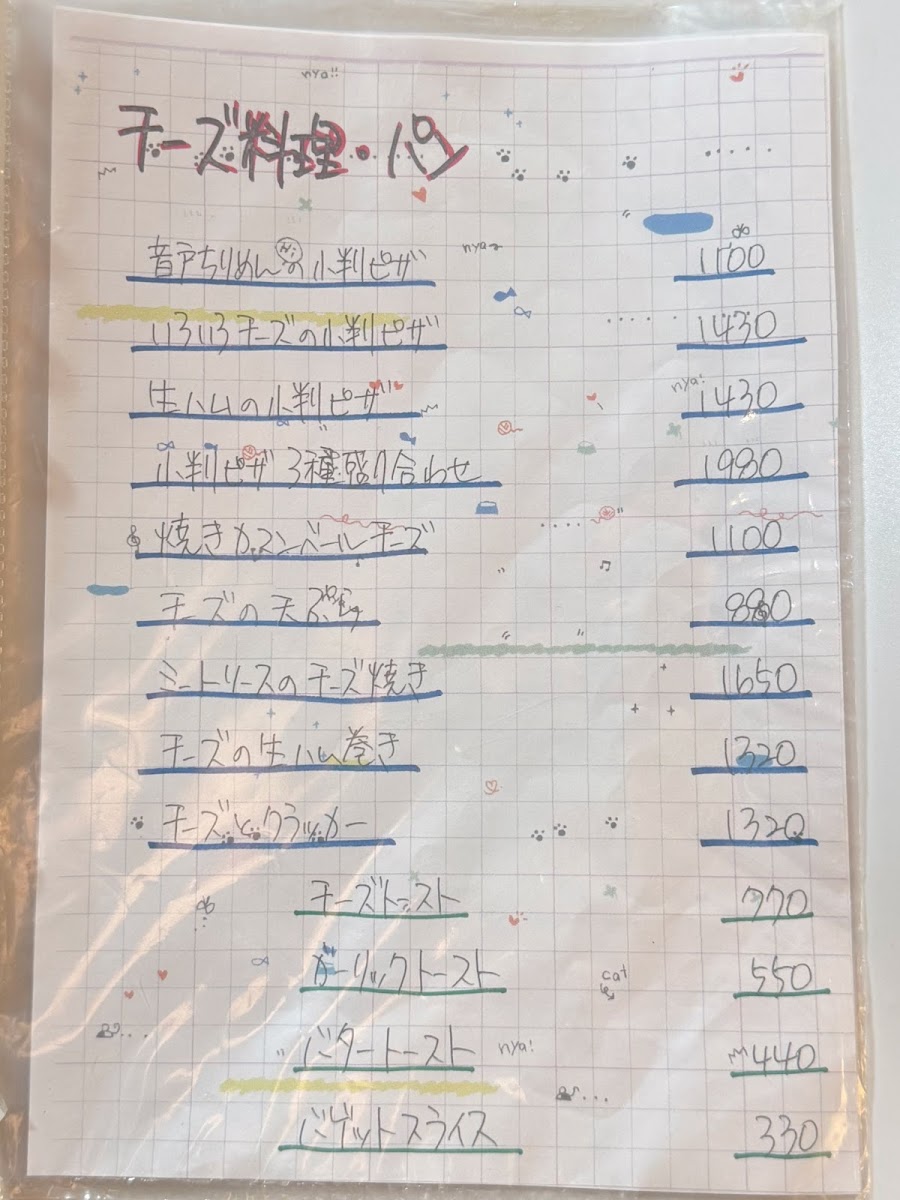 nya!!
チーズ料理・パン
音戸ちりめんの小判ピザ 1100
nya~
いろいろチーズの小判ピザ 1430
生ハムの小判ピザ 1430
nya!
小判ピザ 3種盛り合わせ 1980
焼きカマンベールチーズ 1100
チーズの天ぷら 880
ミートソースのチーズ焼き 1650
チーズの生ハム巻き 1320
チーズとクラッカー 1320
チーズトースト 770
ガーリックトースト 550
cat
バタートースト 440
nya!
バゲットスライス 330